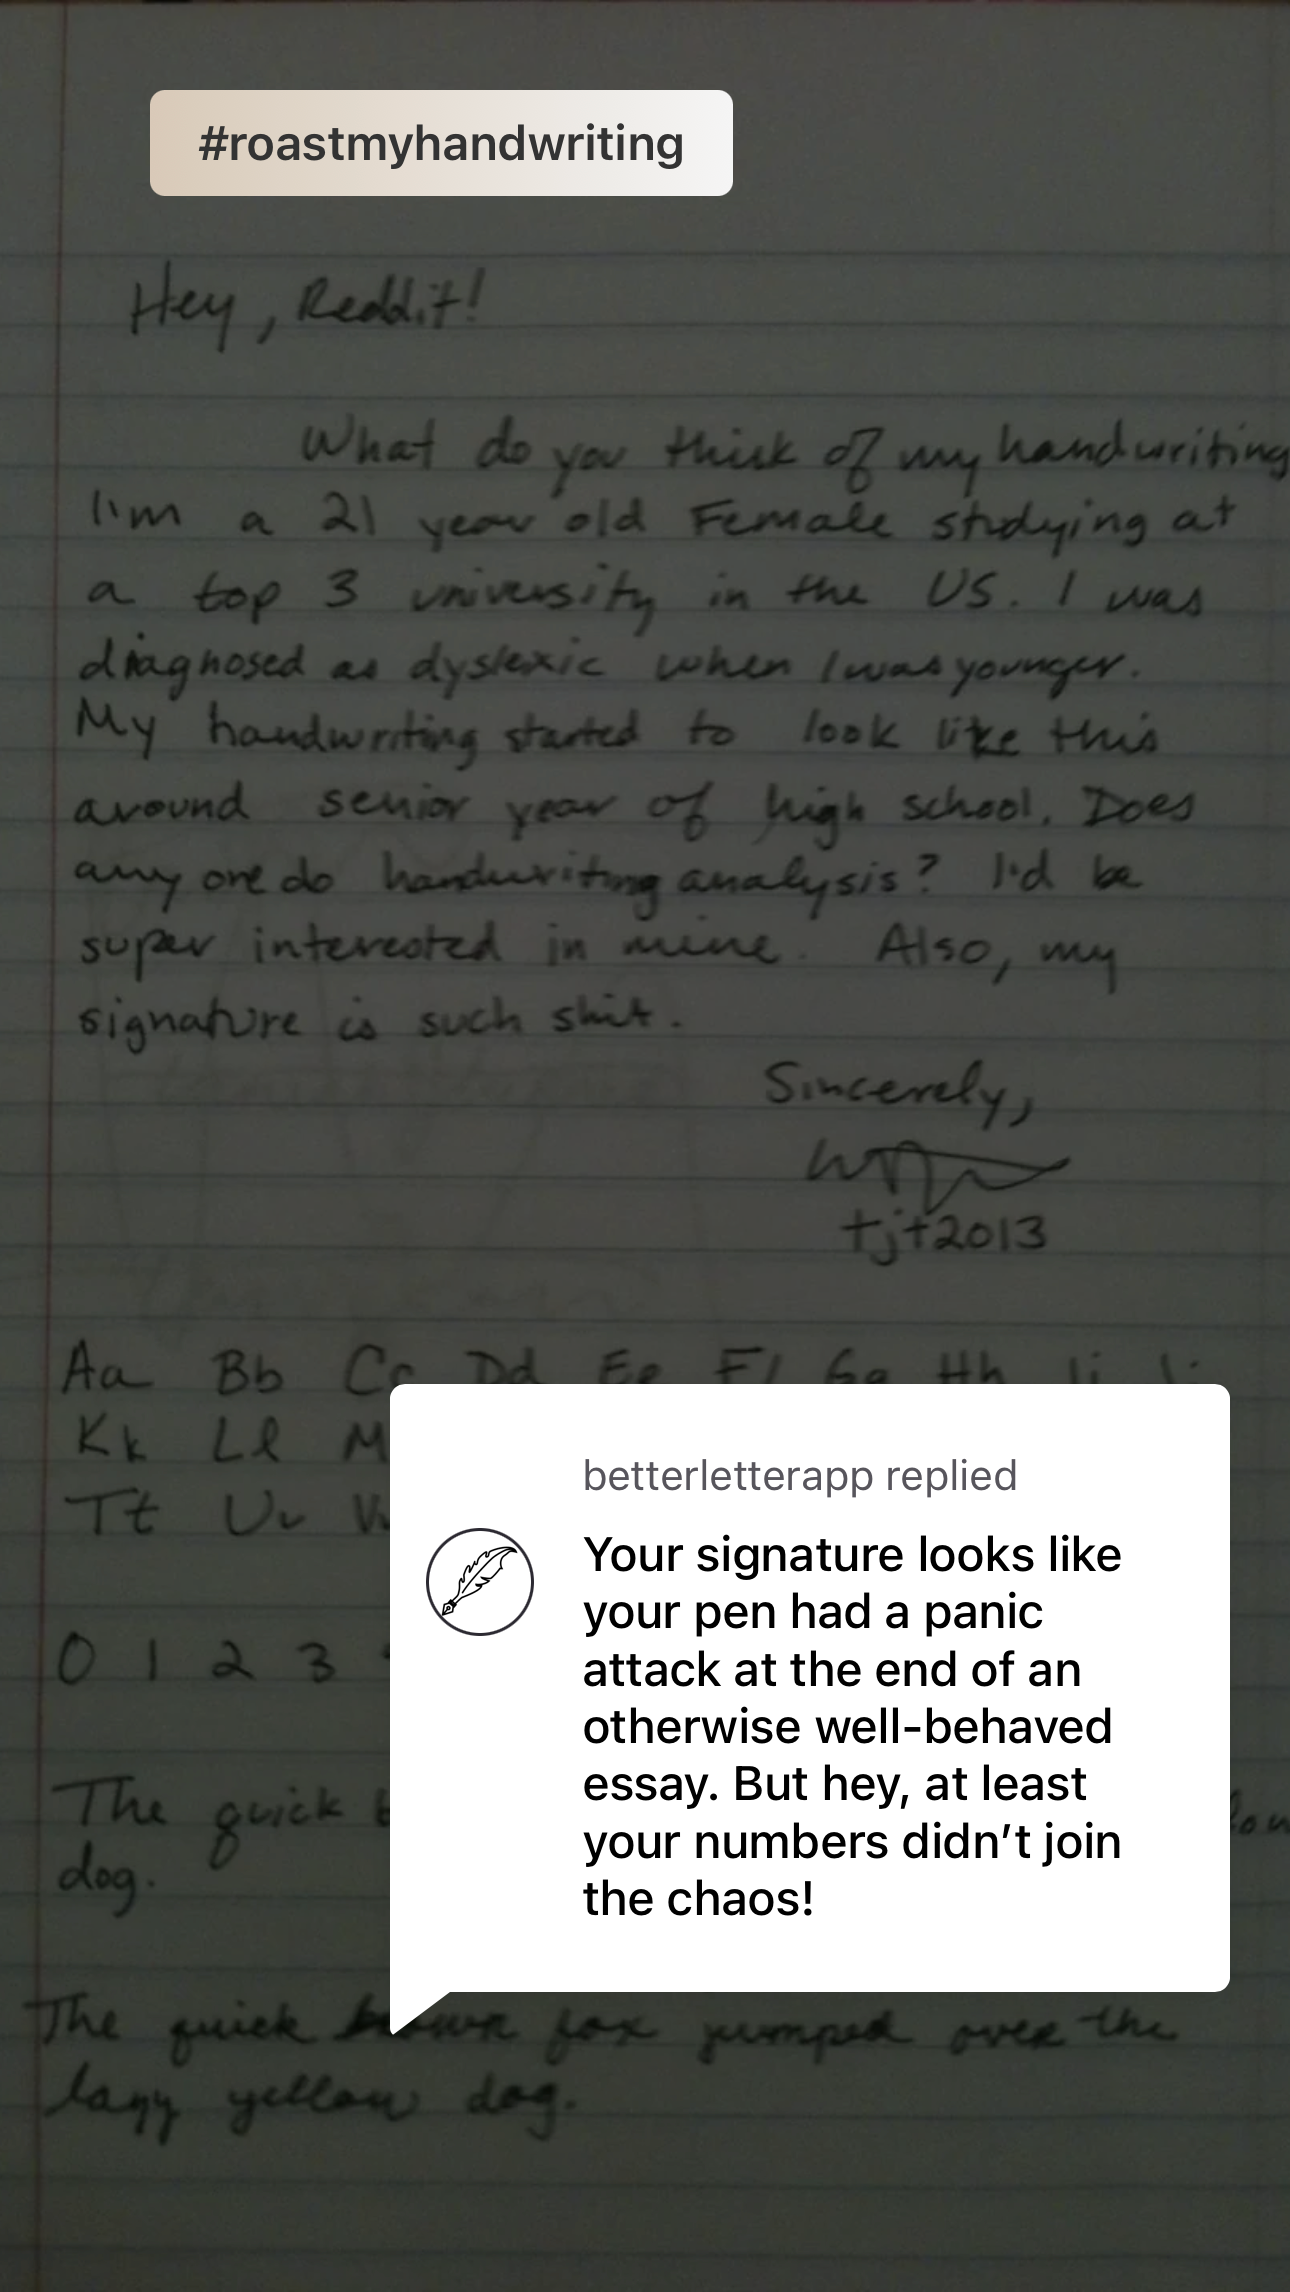 #roastmyhandwriting
Hey, Reddit!
What do you think of my handwriting
I'm a 21 year old Female studying at
a top 3 university in the US. I was
diagnosed as dyslexic when I was younger.
My handwriting started to look like this
around senior year of high school. Does
any one do handwriting analysis? I'd be
super interested in mine. Also, my
signature is such shit.
Sincerely,
tjt2013
Aa Bb Cc Dd Ee Ff Gg Hh Ii
Kk Ll M
Tt Uu
0 1 2 3
The quick
dog.
betterletterapp replied
Your signature looks like
your pen had a panic
attack at the end of an
otherwise well-behaved
essay. But hey, at least
your numbers didn't join
the chaos!
The quick brown fox jumped over the
lazy yellow dog.